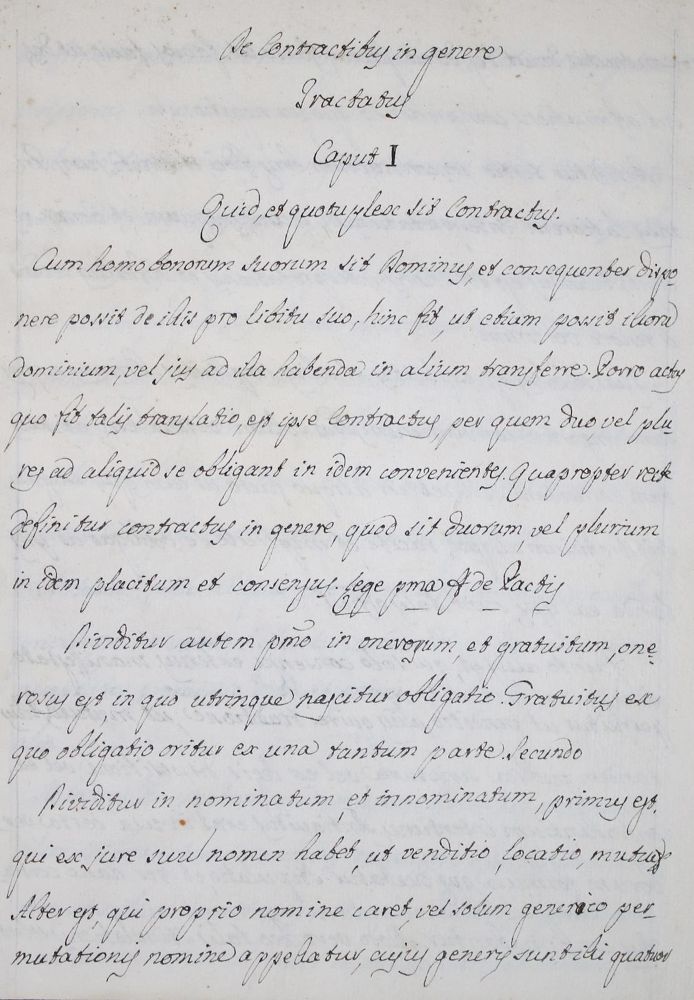 De Contractibus in genere
Tractatus
Caput I
Quid, et quotuplex sit Contractus.
Cum homo bonorum suorum sit Dominus, et consequenter dispo-
nere possit de illis pro libitu suo, hinc fit, ut etiam possit illorum
dominium, vel jus ad illa habenda in alium transferre. Porro actus
quo fit talis translatio, est ipse Contractus, per quem duo, vel plu-
res ad aliquid se obligant in idem convenientes. Quapropter recte
definitur contractus in genere, quod sit duorum, vel plurium
in idem placitum et consensus. Lege pma ff de Pactis
Dividitur autem pmo in onerosum, et gratuitum, one-
rosus est, in quo utrinque nascitur obligatio. Gratuitus ex
quo obligatio oritur ex una tantum parte. Secundo
Dividitur in nominatum, et innominatum, primus est,
qui ex jure suu nomen habet, ut venditio, locatio, mutuu
Alter est, qui proprio nomine caret, vel solum generico per-
mutationis nomine appellatur, cujus generis sunt illi quatuor